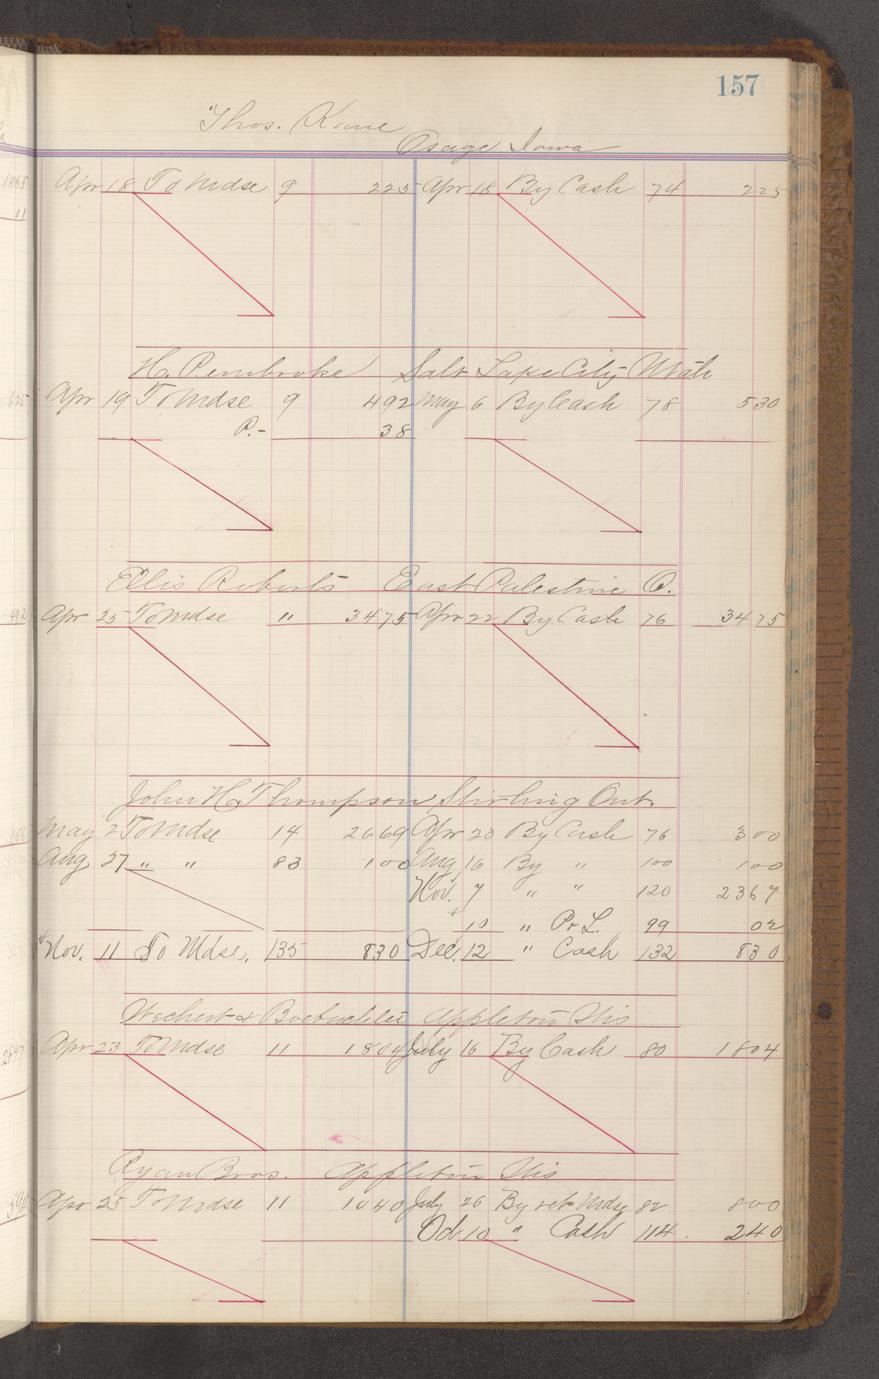 157
Thos. Kane
Osage Iowa
Apr 18 To Mdse 9 225 Apr 18 By Cash 74 225
H. Pembroke Salt Lake City Utah
Apr 19 To Mdse 9 492 May 6 By Cash 78 530
P.- 38
Ellis Roberts East Palestine O.
Apr 25 To Mdse " 3475 Apr 22 By Cash 76 3475
John H. Thompson Stirling Ont.
May 2 To Mdse 14 2669 Apr 20 By Cash 76 300
Aug 27 " " 83 100 Aug 16 By " 100 100
Nov. 7 " " 120 2367
10 " Pr L. 99 02
Nov. 11 To Mdse, 135 830 Dec. 12 " Cash 132 830
Appleton Wis
Apr 23 To Mdse 11 1804 July 16 By Cash 80 1804
Ryan Bros. Appleton Wis
Apr 25 To Mdse 11 1040 July 26 By ret Mdse 82 800
Oct 10 " Cash 114 240